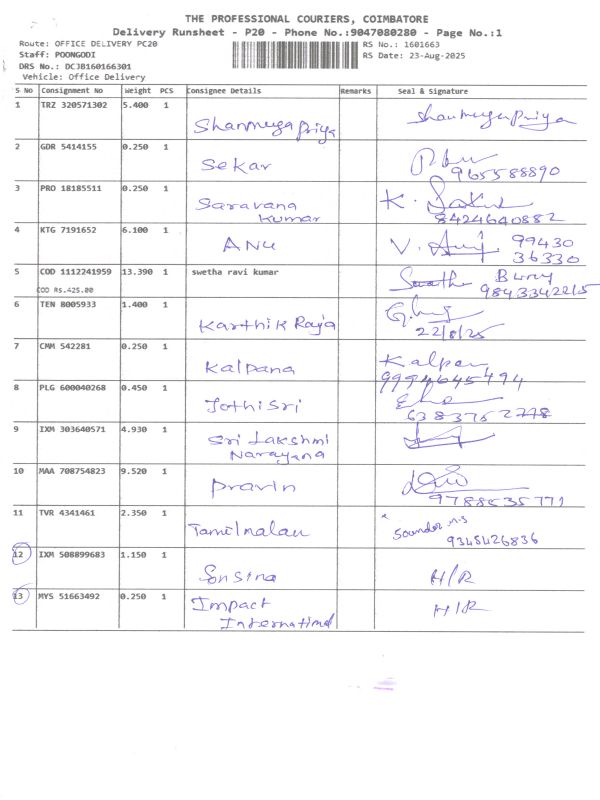 THE PROFESSIONAL COURIERS, COIMBATORE
Delivery Runsheet - P20 - Phone No.:9047080280 - Page No.:1
Route: OFFICE DELIVERY PC20 RS No.: 1601663
Staff: POONGODI RS Date: 23-Aug-2025
DRS No.: DCJB160166301
Vehicle: Office Delivery
S No Consignment No Weight PCS Consignee Details Remarks Seal & Signature
1 TRZ 320571302 5.400 1
Shanmuga Priya Shanmuga Priya
2 GDR 5414155 0.250 1
Sekar
965588890
3 PRO 18185511 0.250 1
Saravana K.
Kumar 8424640882
4 KTG 7191652 6.100 1
Anu V. 99430
36330
5 COD 1112241959 13.390 1 swetha ravi kumar
COD Rs.425.00
6 TEN 8005933 1.400 1
Karthik Raja
22/8/25
7 CMM 542281 0.250 1
Kalpana
9994645494
8 PLG 600040268 0.450 1
Jothi Sri
6383762748
9 IXM 303640571 4.930 1
Sri Lakshmi
Narayana
10 MAA 708754823 9.520 1
Pravin
9788535771
11 TVR 4341461 2.350 1
Sounder M.S
9345426836
12 IXM 508899683 1.150 1
H/R
13 MYS 51663492 0.250 1
Impact H/R
International